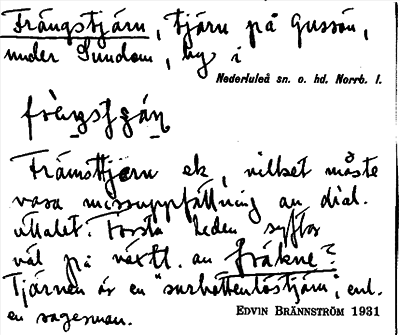 Frängstjärn, tjärn på Gussön,
under Sundom, by i
Nederluleå sn. o. hd. Norrb. l.
Främsttjärn ek, vilket måste
vara missuppfattning av dial.
uttalet. Första leden syftar
väl på växtt. av fräkne?
Tjärnen är en "surbottenlöstjärn", enl.
en sagesman.
EDVIN BRÄNNSTRÖM 1931